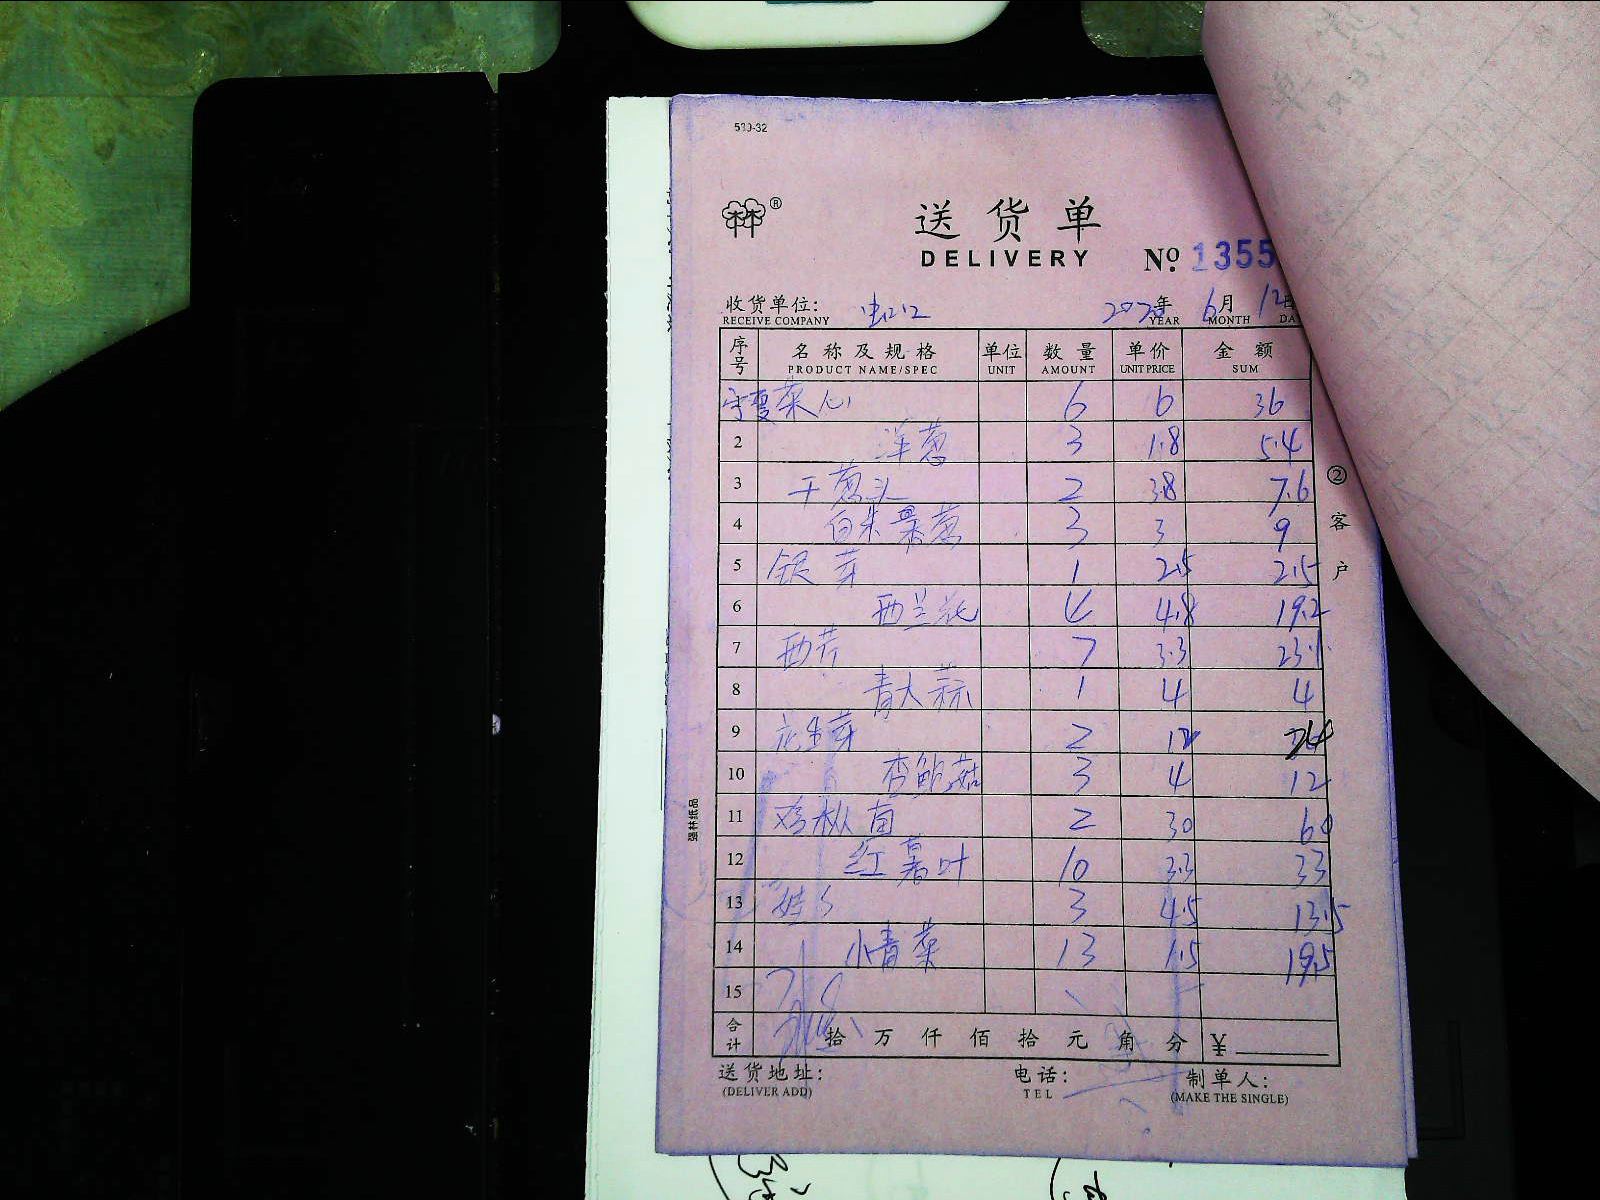 539-32
送货单
DELIVERY Nº 1355
收货单位: 2020年 6月 12日
RECEIVE COMPANY YEAR MONTH DA
序号 名称及规格 单位 数量 单价 金额
PRODUCT NAME/SPEC UNIT AMOUNT UNIT PRICE SUM
宁夏菜心 6 6 36
2 洋葱 3 1.8 5.4
3 干葱头 2 3.8 7.6
4 白米果葱 3 3 9
5 银芽 1 2.5 2.5
6 西兰花 4 4.8 19.2
7 西芹 7 3.3 23.1
8 青大蒜 1 4 4
9 花生芽 2 12 24
10 杏鲍菇 3 4 12
11 鸡枞菌 2 30 60
12 红薯叶 10 3.3 33
13 娃 3 4.5 13.5
14 小青菜 13 1.5 19.5
15
合计 拾 万 仟 佰 拾 元 角 分 ¥
送货地址: 电话: 制单人:
(DELIVER ADD) TEL (MAKE THE SINGLE)
②客户
强林纸品